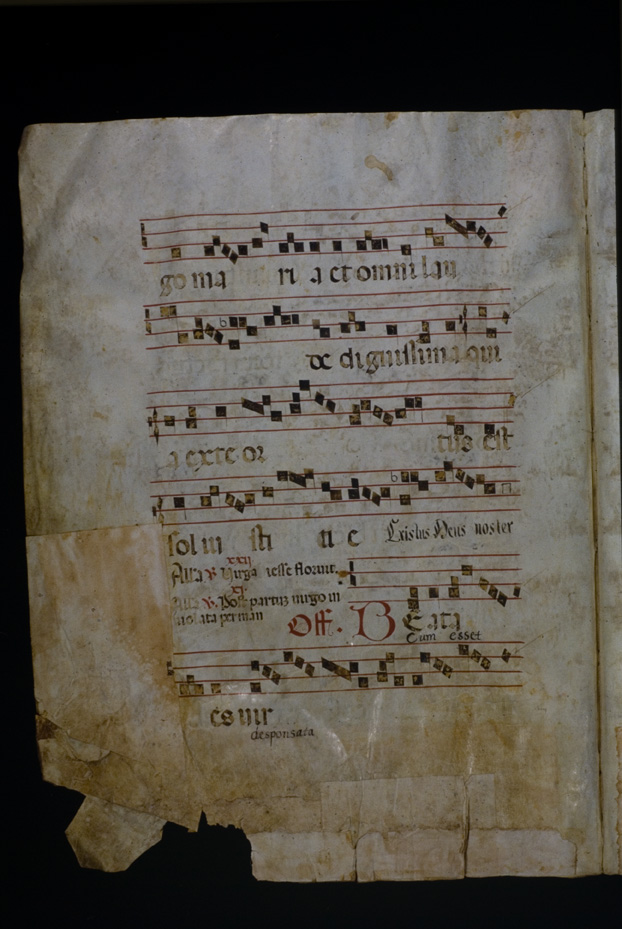 go ma ri a et omni lau
de dignissima qui
a ex te or tus est
sol iu sti ti e Cristus Deus noster
xxii
All'a ℣. Uirga iesse floruit.
xi
All'a ℣. Post partuz uirgo in
uiolata perman
Off. BEata
Cum esset
es uir
desponsata